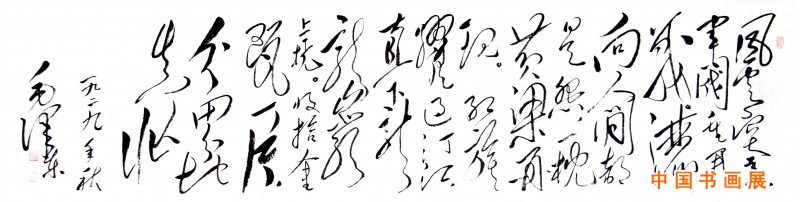 风云突变,
军阀重开
战。洒
向人间都
是怨,一枕
黄粱再
现。红旗
跃过汀江,
直下
龙岩
上杭。收拾金
瓯一片,
分田分地
真忙
一九二九年秋
毛泽东
中国书画展